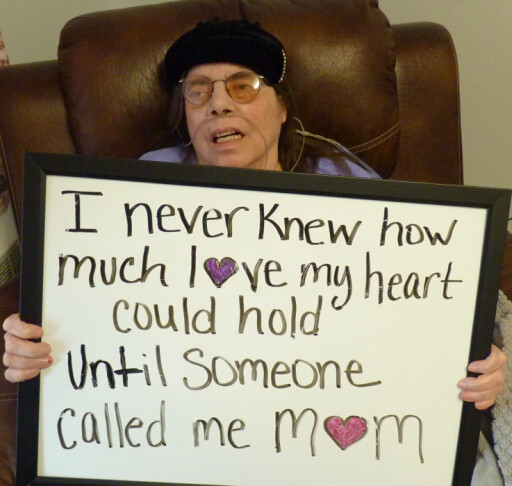 I never knew how
much love my heart
could hold
Until Someone
called me mom